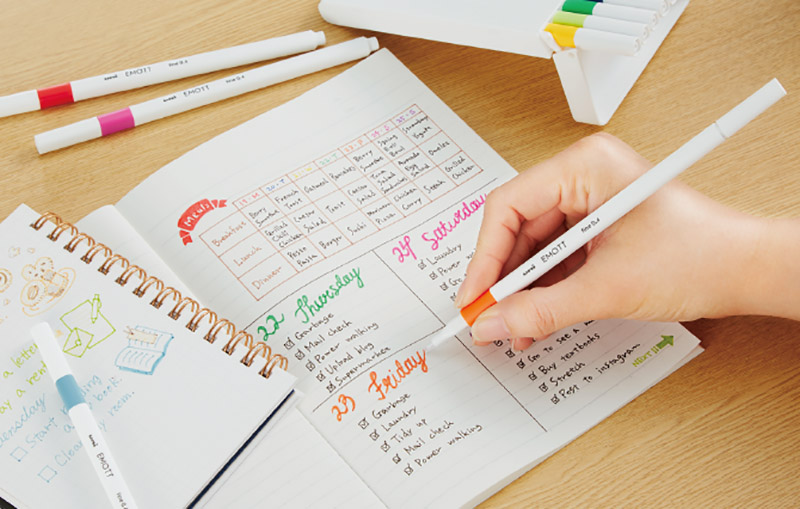 uni EMOTT fine 0.4
uni EMOTT fine 0.4
MENU
19·M 20·T 21·W 22·T 23·F 24·S 25·S
Breakfast Berry Smoothie French Toast Oatmeal Pancakes Berry Smoothie Spring Roll Bowl Strawberry Yogurt
Lunch Grilled Chicken Caesar Salad Caesar Salad Tuna Salad Avocado Egg Sandwiches Omelet
Dinner Pesto Pasta Burger Sushi Pizza Chicken Curry Steak Grilled Chicken
22 Thursday
Garbage
Mail check
Power walking
Upload blog
Supermarket
24 Saturday
Laundry
Power
Go to
Go to see a
Buy textbooks
Stretch
Post to instagram
NEXT!!
23 Friday
Garbage
Laundry
Tidy up
Mail check
Power walking
uni EMOTT fine 0.4
Start
Clean my room.
uni EMOTT fine 0.4